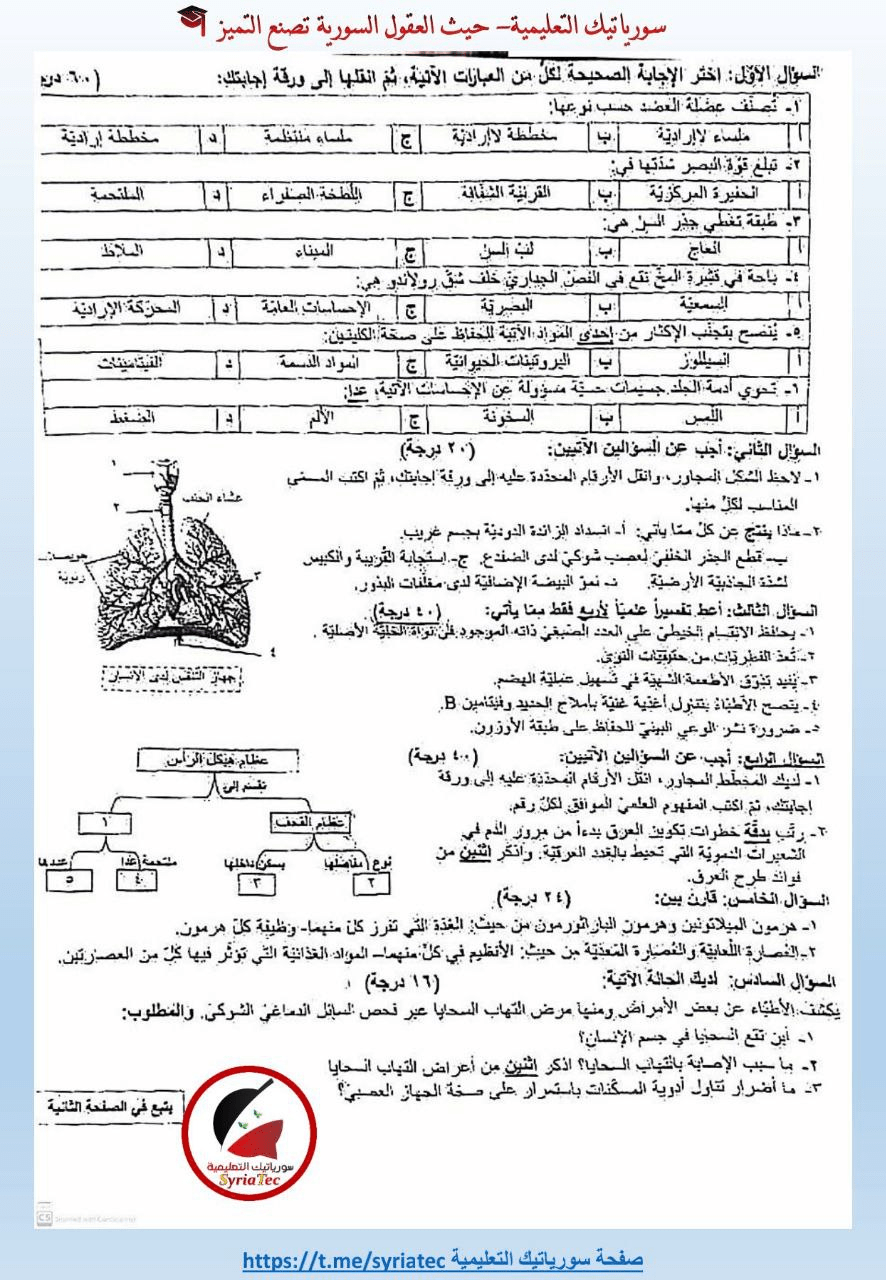 سورياتيك التعليمية- حيث العقول السورية تصنع التميز
السؤال الأول: اختر الإجابة الصحيحة لكل من العبارات الآتية، ثم انقلها إلى ورقة إجابتك: (٦٠ درجة
١- تصنف عضلة العضد حسب نوعها:
أ ملساء لاإرادية ب مخططة لاإرادية ج ملساء منتظمة د مخططة إرادية
٢- تبلغ قوة البصر شدتها في:
أ الحفيرة المركزية ب القرنية الشفافة ج اللطخة الصفراء د الملتحمة
٣- طبقة تغطي جذر السن هي:
أ العاج ب لب السن ج الميناء د الملاط
٤- باحة في قشرة المخ تقع في الفص الجداري خلف شق رولاندو هي:
أ السمعية ب البصرية ج الإحساسات العامة د المحركة الإرادية
٥- ينصح بتجنب الإكثار من إحدى المواد الآتية للحفاظ على صحة الكليتين:
أ السيللوز ب البروتينات الحيوانية ج المواد الدسمة د الفيتامينات
٦- تحوي أدمة الجلد جسيمات حسية مسؤولة عن الإحساسات الآتية، عدا:
أ اللمس ب السخونة ج الألم د الضغط
السؤال الثاني: أجب عن السؤالين الآتيين: (٢٠ درجة)
١- لاحظ الشكل المجاور، وانقل الأرقام المحددة عليه إلى ورقة إجابتك، ثم اكتب المسمى
المناسب لكل منها.
٢- ماذا ينتج عن كل مما يأتي: أ- انسداد الزائدة الدودية بجسم غريب.
ب- قطع الجذر الخلفي لعصب شوكي لدى الضفدع. ج- استجابة القريبة والكييس
لشدة الجاذبية الأرضية. د- نمو البيضة الإضافية لدى مغلفات البذور.
١
٢
غشاء الجنب
حويصلات
رئوية
٣
٤
جهاز التنفس لدى الإنسان
السؤال الثالث: أعط تفسيراً علمياً لأربع فقط مما يأتي: (٤٠ درجة)
١- يحافظ الانقسام الخيطي على العدد الصبغي ذاته الموجود في نواة الخلية الأصلية.
٢- تعد الفطريات من حقيقيات النوى.
٣- يفيد تذوق الأطعمة الشهية في تسهيل عملية الهضم.
٤- ينصح الأطباء بتناول أغذية غنية بأملاح الحديد وفيتامين B.
٥- ضرورة نشر الوعي البيئي للحفاظ على طبقة الأوزون.
السؤال الرابع: أجب عن السؤالين الآتيين: (٤٠ درجة)
١- لديك المخطط المجاور، انقل الأرقام المحددة عليه إلى ورقة
إجابتك، ثم اكتب المفهوم العلمي الموافق لكل رقم.
٢- رتب بدقة خطوات تكوين العرق بدءاً من مرور الدم في
الشعيرات الدموية التي تحيط بالغدد العرقية، واذكر اثنين من
فوائد طرح العرق.
عظام هيكل الرأس
تقسم إلى
عظام القحف
١
نوع مفاصلها
يسكن داخلها
ملتحمة عدا
عددها
٢
٣
٤
٥
السؤال الخامس: قارن بين: (٢٤ درجة)
١- هرمون الميلاتونين وهرمون الباراثورمون من حيث: الغدة التي تفرز كل منهما- وظيفة كل هرمون.
٢- العصارة اللعابية والعصارة المعدية من حيث: الأنظيم في كل منهما- المواد الغذائية التي تؤثر فيها كل من العصارتين.
السؤال السادس: لديك الحالة الآتية: (١٦ درجة)
يكشف الأطباء عن بعض الأمراض ومنها مرض التهاب السحايا عبر فحص السائل الدماغي الشوكي، والمطلوب:
١- أين تقع السحايا في جسم الإنسان؟
٢- ما سبب الإصابة بالتهاب السحايا؟ اذكر اثنين من أعراض التهاب السحايا
٣- ما أضرار تناول أدوية المسكنات باستمرار على صحة الجهاز العصبي؟
يتبع في الصفحة الثانية
سورياتيك التعليمية
SyriaTec
CS Scanned with CamScanner
صفحة سورياتيك التعليمية https://t.me/syriatec